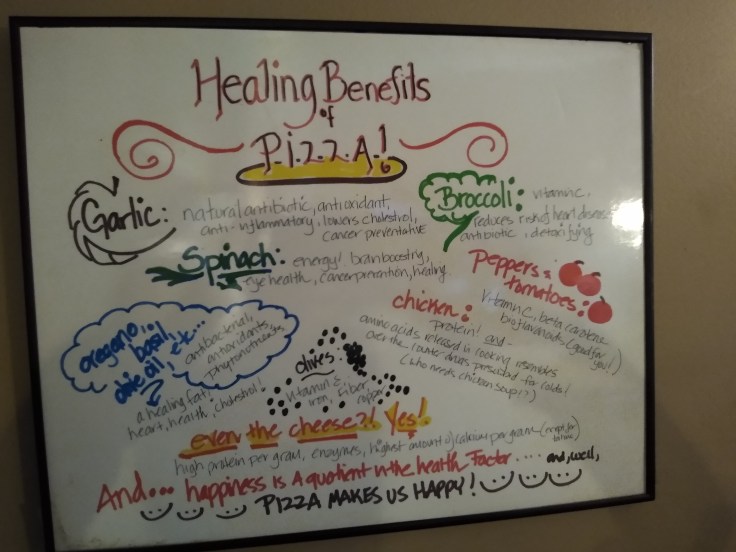 Healing Benefits
of
P.i.z.z.A!
Garlic: natural antibiotic, antioxidant,
anti-inflammatory, lowers cholestrol,
cancer preventative
Broccoli: vitamin C,
reduces risk of heart disease
antibiotic, detoxifying
Spinach: energy! brain boostry,
eye health, cancer prevention, healing
Peppers &
tomatoes:
vitamin C, beta carotene
bioflavanoids (good for
you!)
oregano,
basil,
olive oil, etc...
antibacterial,
antioxidants,
phytonutrients
a healing fat,
heart, health, cholestrol!
chicken:
protein! and -
amino acids released in cooking resembles
over the counter drugs prescribed for colds!
(who needs chicken soup!?)
olives:
vitamin E,
iron, fiber,
copper
even the cheese?! Yes!
high protein per gram, enzymes, highest amount of calcium per gram (except for
And... happiness is A quotient in the health Factor .... and, well,
PIZZA MAKES US HAPPY!